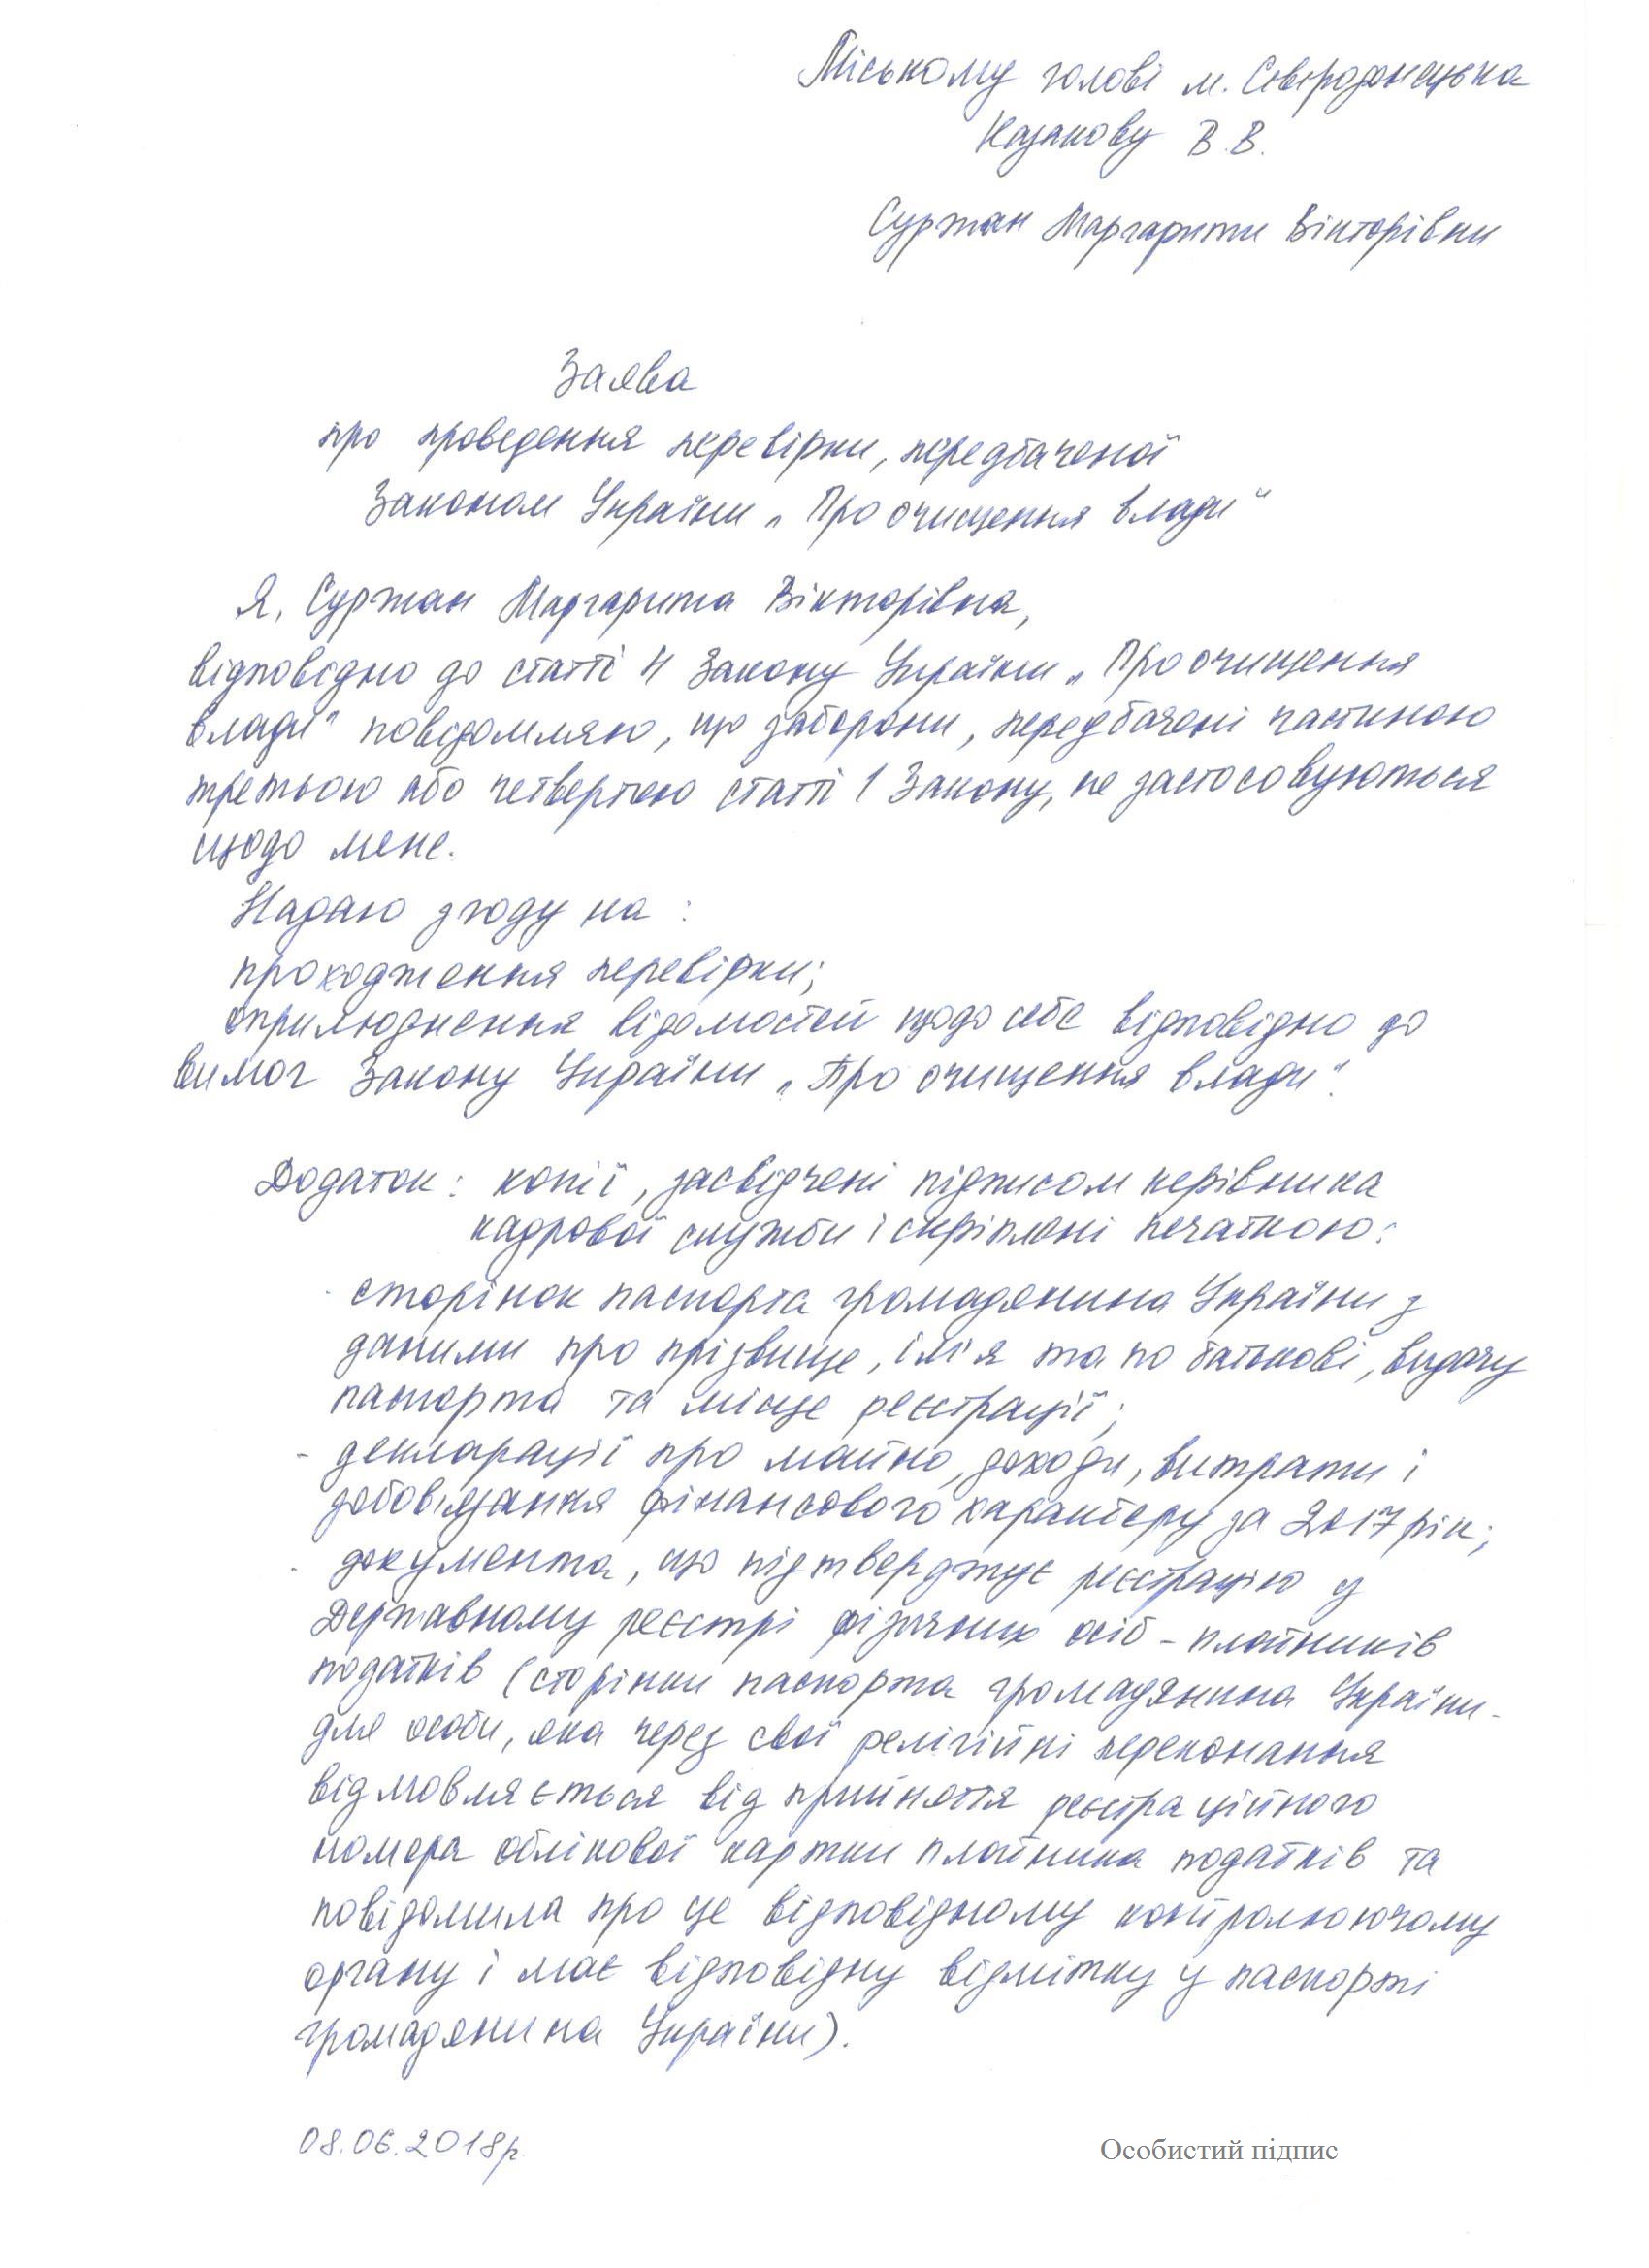 Міському голові м. Сєвєродонецька
Казакову В.В.
Суржан Маргарити Вікторівни
Заява
про проведення перевірки, передбаченої
Законом України „Про очищення влади"
Я, Суржан Маргарита Вікторівна,
відповідно до статті 4 Закону України „Про очищення
влади" повідомляю, що заборони, передбачені частиною
третьою або четвертою статті 1 Закону, не застосовуються
щодо мене.
Надаю згоду на:
проходження перевірки;
оприлюднення відомостей щодо себе відповідно до
вимог Закону України „Про очищення влади".
Додаток: копії, засвідчені підписом керівника
кадрової служби і скріплені печаткою:
- сторінок паспорта громадянина України з
даними про прізвище, ім'я та по батькові, видачу
паспорта та місце реєстрації;
- декларації про майно, доходи, витрати і
зобов'язання фінансового характеру за 2017 рік;
- документа, що підтверджує реєстрацію у
Державному реєстрі фізичних осіб - платників
податків (сторінки паспорта громадянина України -
для особи, яка через свої релігійні переконання
відмовляється від прийняття реєстраційного
номера облікової картки платника податків та
повідомила про це відповідному контролюючому
органу і має відповідну відмітку у паспорті
громадянина України).
08.06.2018р. Особистий підпис